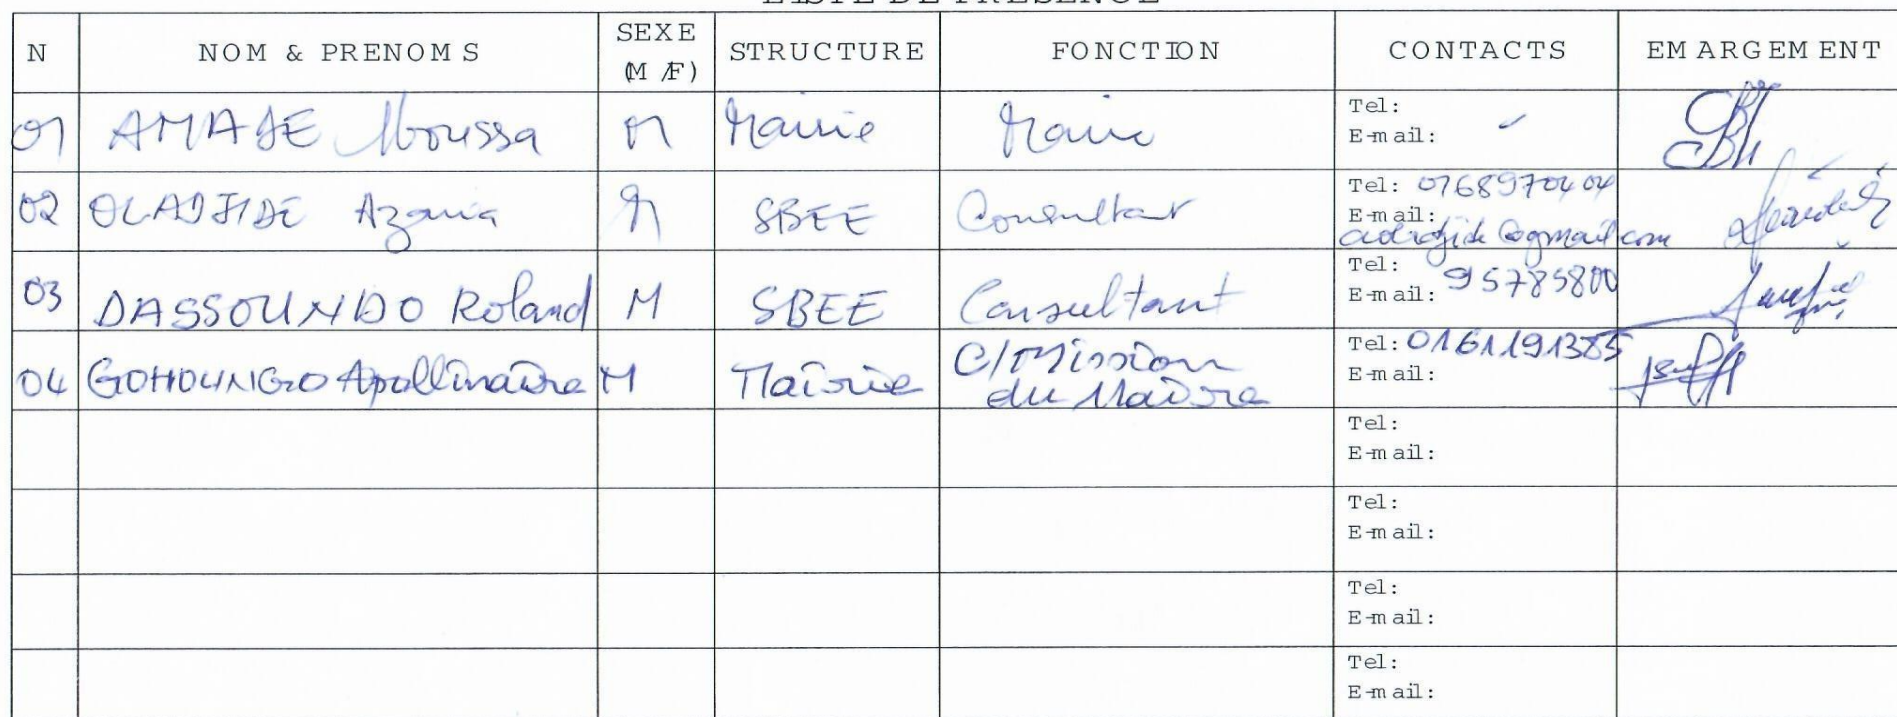 LISTE DE PRESENCE
N NOM & PRENOMS SEXE (M/F) STRUCTURE FONCTION CONTACTS EMARGEMENT
01 AMADE Moussa M Mairie Maire Tel:
E-mail: -
02 OLADJIDE Azaria M SBEE Consultant Tel: 0168970404
E-mail:
@gmail.com
03 DASSOUNDO Roland M SBEE Consultant Tel:
E-mail: 95785800
04 GOHOUNGO Apollinaire M Mairie C/Mission Tel: 0161191385
du Maire E-mail:
Tel:
E-mail:
Tel:
E-mail:
Tel:
E-mail:
Tel:
E-mail: